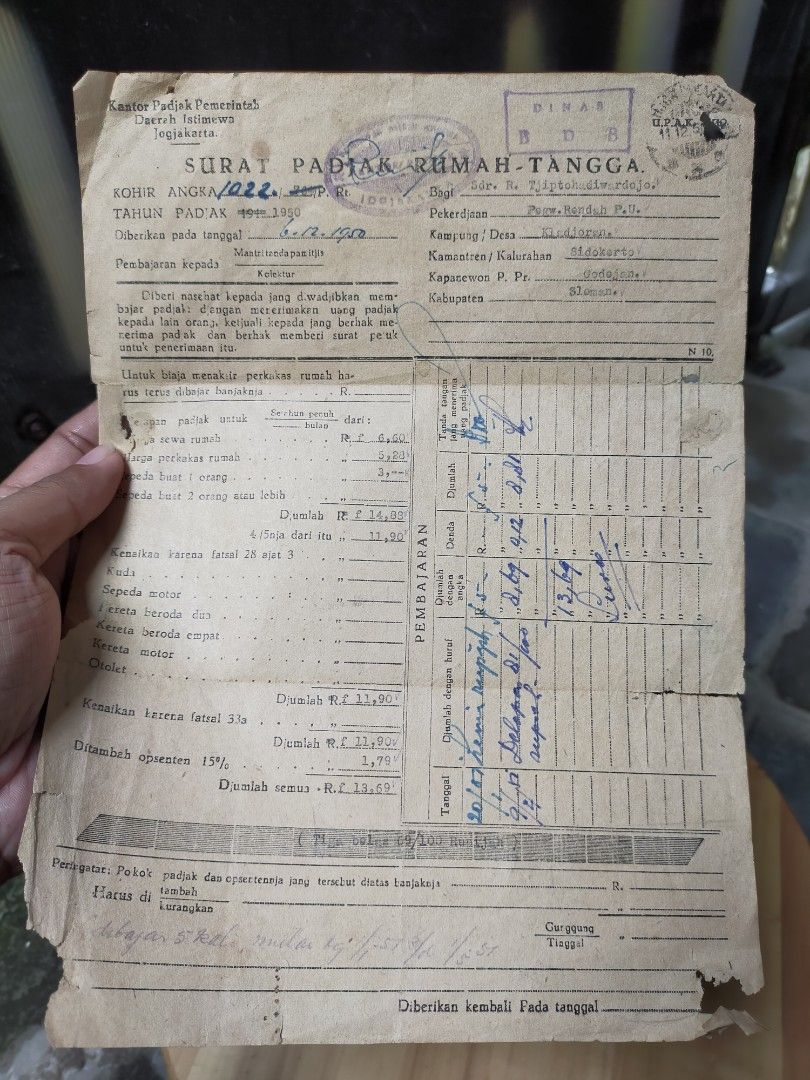 Kantor Padjak Pemerintah
Daerah Istimewa
Jogjakarta.
DINAS
B D B
U.P.A.K.
11.12
SURAT PADJAK RUMAH-TANGGA.
KOHIR ANGKA 1022. / P. Rt.
TAHUN PADJAK 1950
Diberikan pada tanggal 6.12.1950
Pembajaran kepada Mantri tandapanitjis
Kolektur
Bagi Sdr. R. Tjiptohadiwardojo.
Pekerdjaan Pegw.Rendah P.U.
Kampung / Desa Kladjoran.
Kamantren / Kalurahan Sidokerto
Kapanewon P. Pr. Godejan.
Kabupaten Sleman.
Diberi nasehat kepada jang d.wadjibkan mem-
bajar padjak: djangan menerimakan uang padjak
kepada lain orang, ketjuali kepada jang berhak me-
nerima padjak dan berhak memberi surat petuk
untuk penerimaan itu.
N 10.
Untuk biaja menaksir perkakas rumah ha-
rus terus dibajar banjaknja . R.
apan padjak untuk Setahun penuh dari:
bulan
sewa rumah R. f 6,60
Harga perkakas rumah " 5,28
Sepeda buat 1 orang " 3,--
Sepeda buat 2 orang atau lebih "
Djumlah R. f 14,88
4/5nja dari itu " 11,90
Kenaikan karena fatsal 28 ajat 3 "
Kuda "
Sepeda motor "
Kereta beroda dua "
Kereta beroda empat "
Kereta motor "
Otolet "
Djumlah R. f 11,90
Kenaikan karena fatsal 33a "
Djumlah R. f 11,90
Ditambah opsenten 15% " 1,79
Djumlah semua R. f 13,69
PEMBAJARAN
Tanggal
Djumlah dengan huruf
Djumlah dengan angka
Denda
Djumlah
Tanda tangan jang menerima uang padjak
lima rupijah 5 - R. -- 5 -
Delapan 81/100 8,69 0,12 8,81
rupiah
13,69
( Tiga belas 69/100 Rupijah )
Peringatan: Pokok padjak dan opsentennja jang tersebut diatas banjaknja R.
Harus di tambah
kurangkan "
Gunggung
Tinggal "
dibajar 5 kali, mulai tg 1/1-51 s/d 1/5 51
Diberikan kembali Pada tanggal